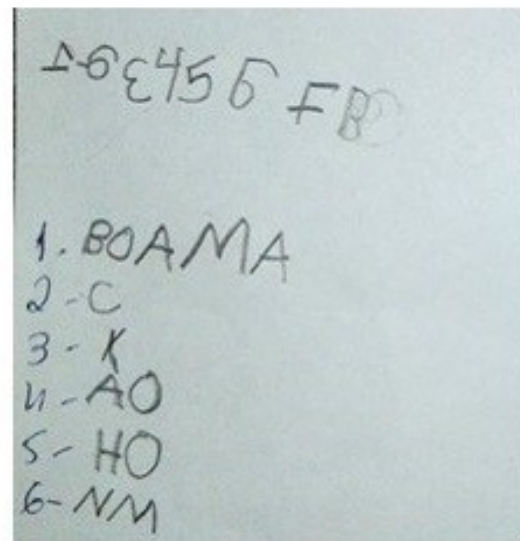 1-6E456 FB
1. BOAMA
2-C
3-K
4-AO
5-HO
6-NM